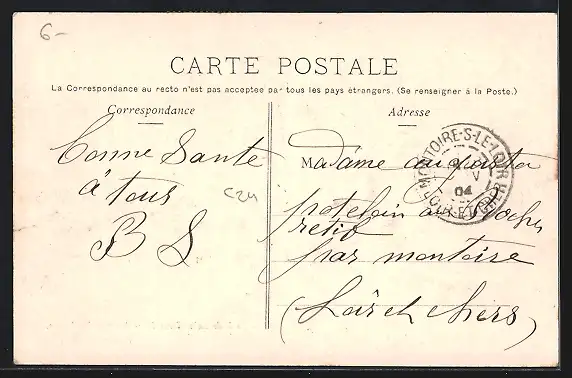 6-
CARTE POSTALE
La Correspondance au recto n'est pas acceptée par tous les pays étrangers. (Se renseigner à la Poste.)
Correspondance
Adresse
Bonne Sante
à tous
B S
C24
Madame augusta
poteloin aux Roches
par montoire
(Loir et chers)
MONTOIRE-S-LE-LOIR
04
LOIR-ET-CHER